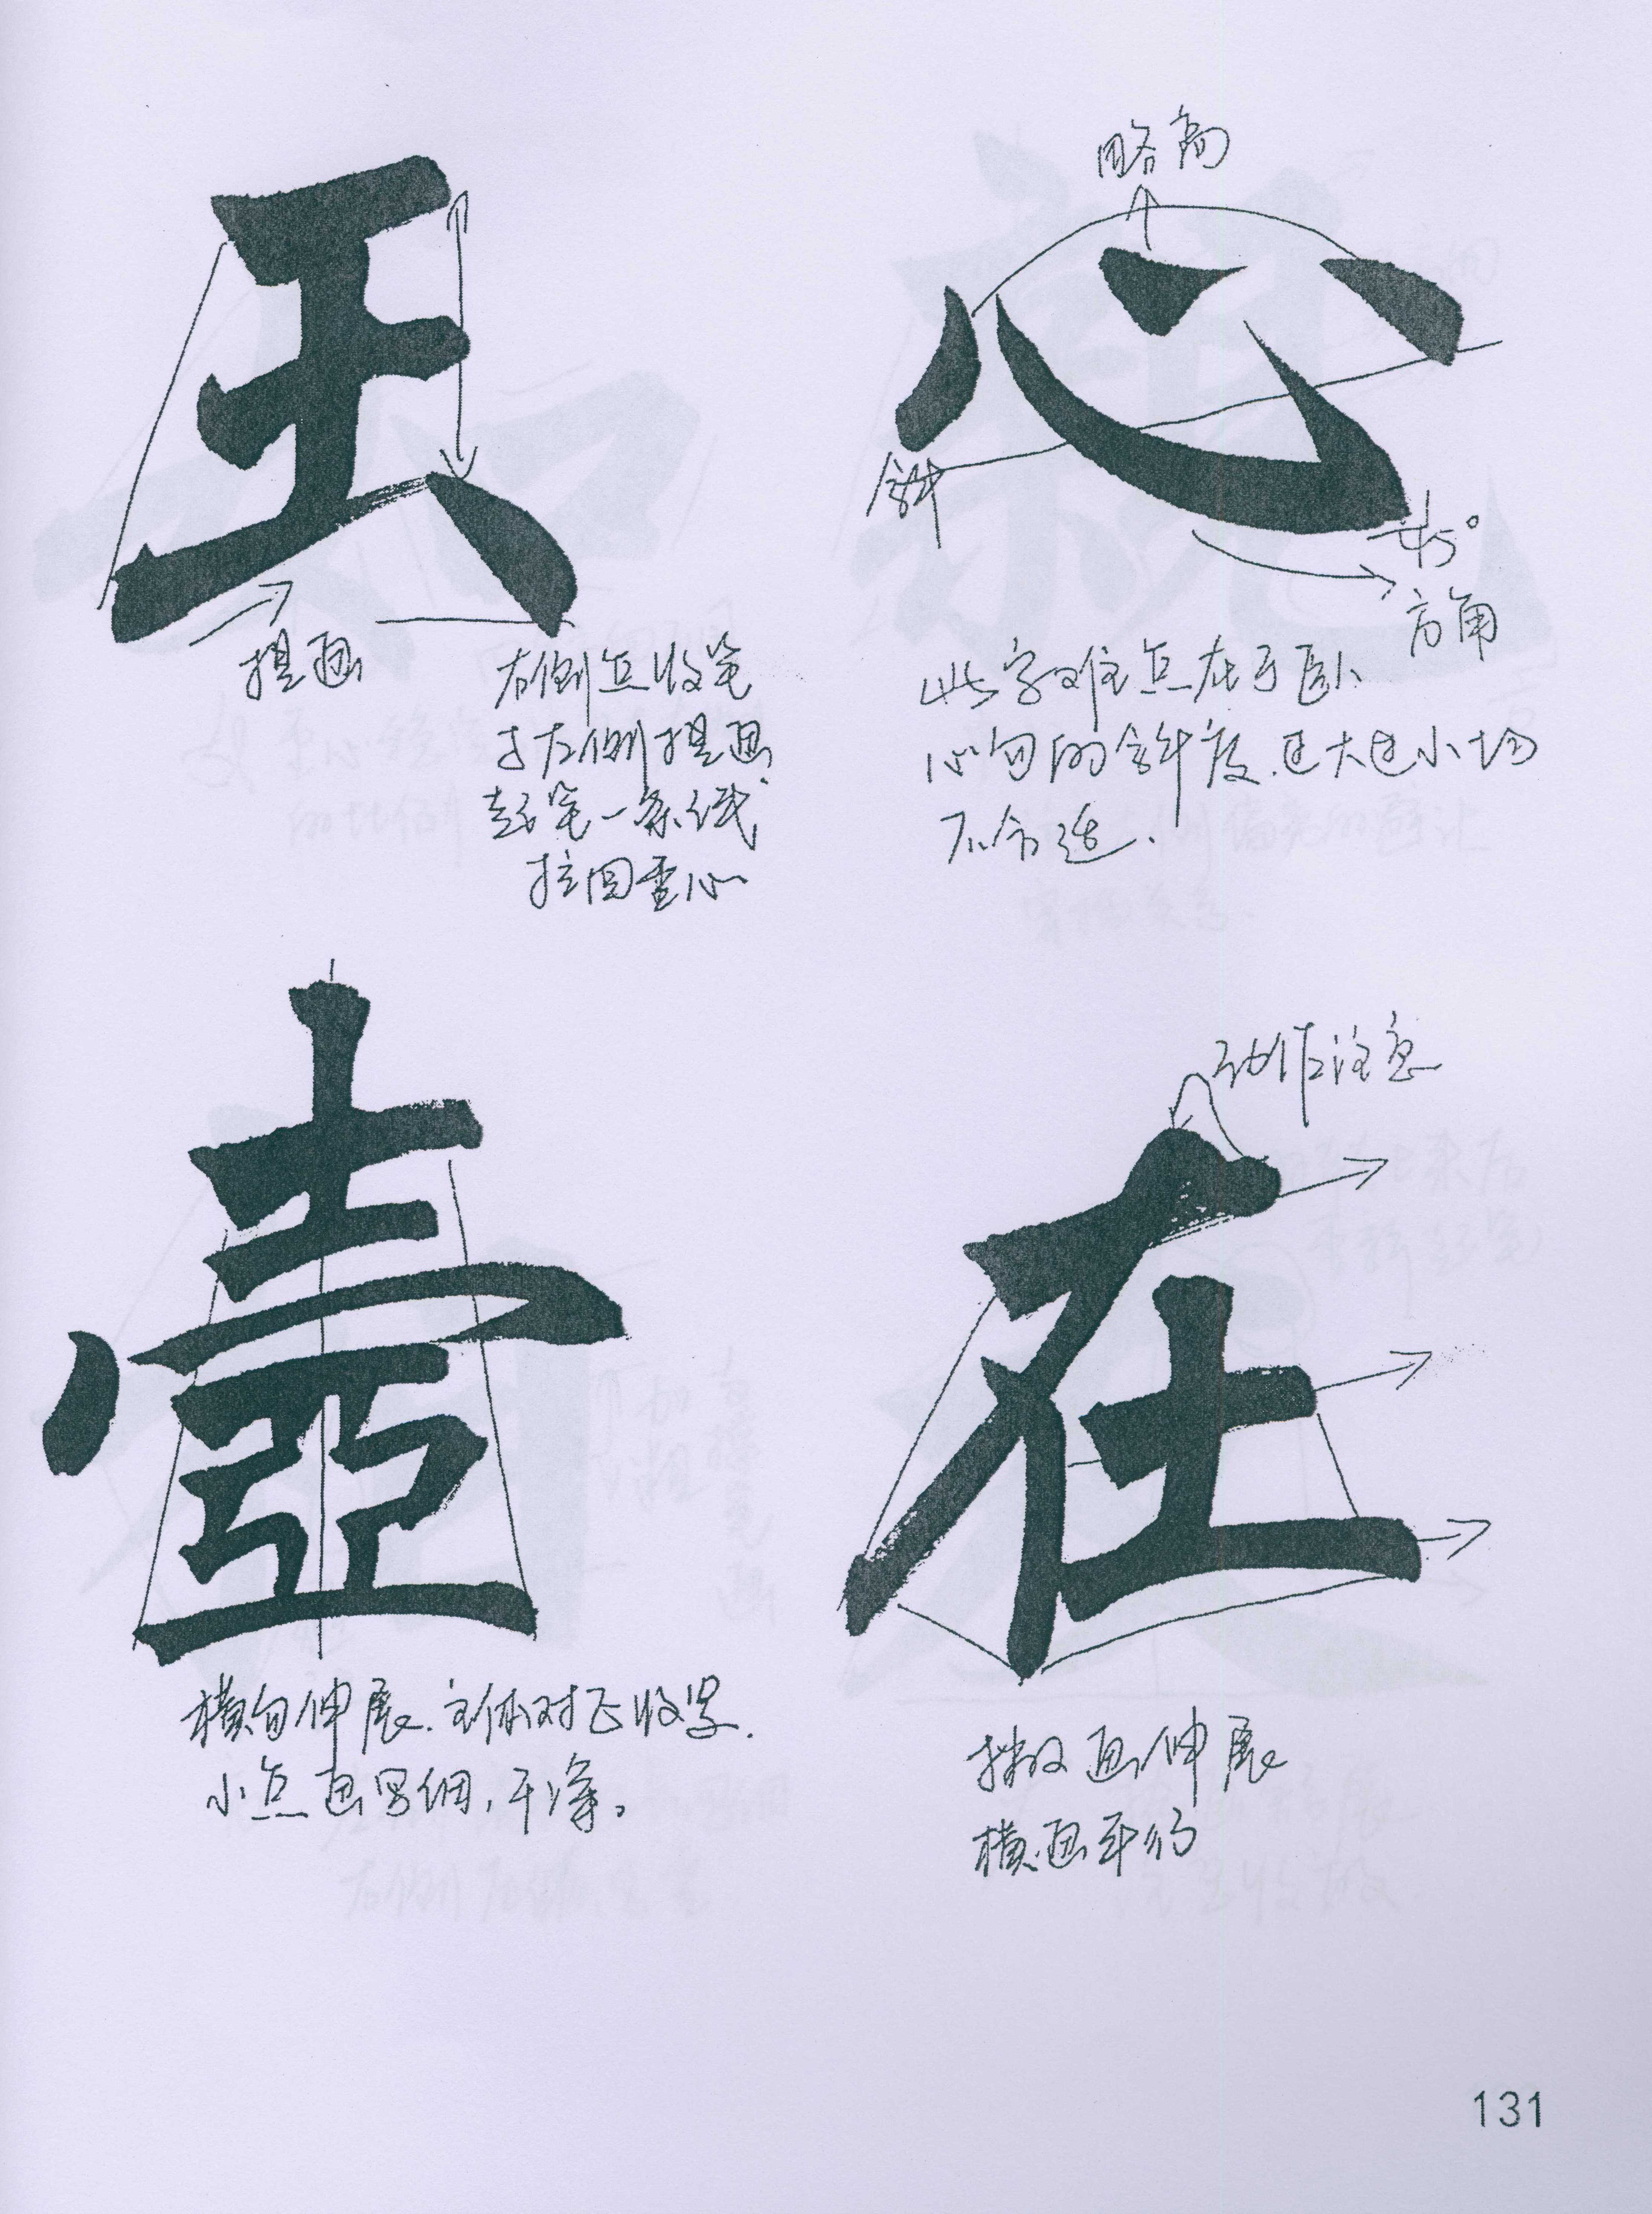 玉
提画
右侧点收笔
与左侧提画
起笔一条线
拉回重心
略高
心
斜
45°
方角
此字难点在于卧
心勾的斜度.过大过小均
不合适.
壶
横勾伸展.主体对正收紧.
小点画写细,干净。
动作注意
在
撇画伸展
横画平行
131